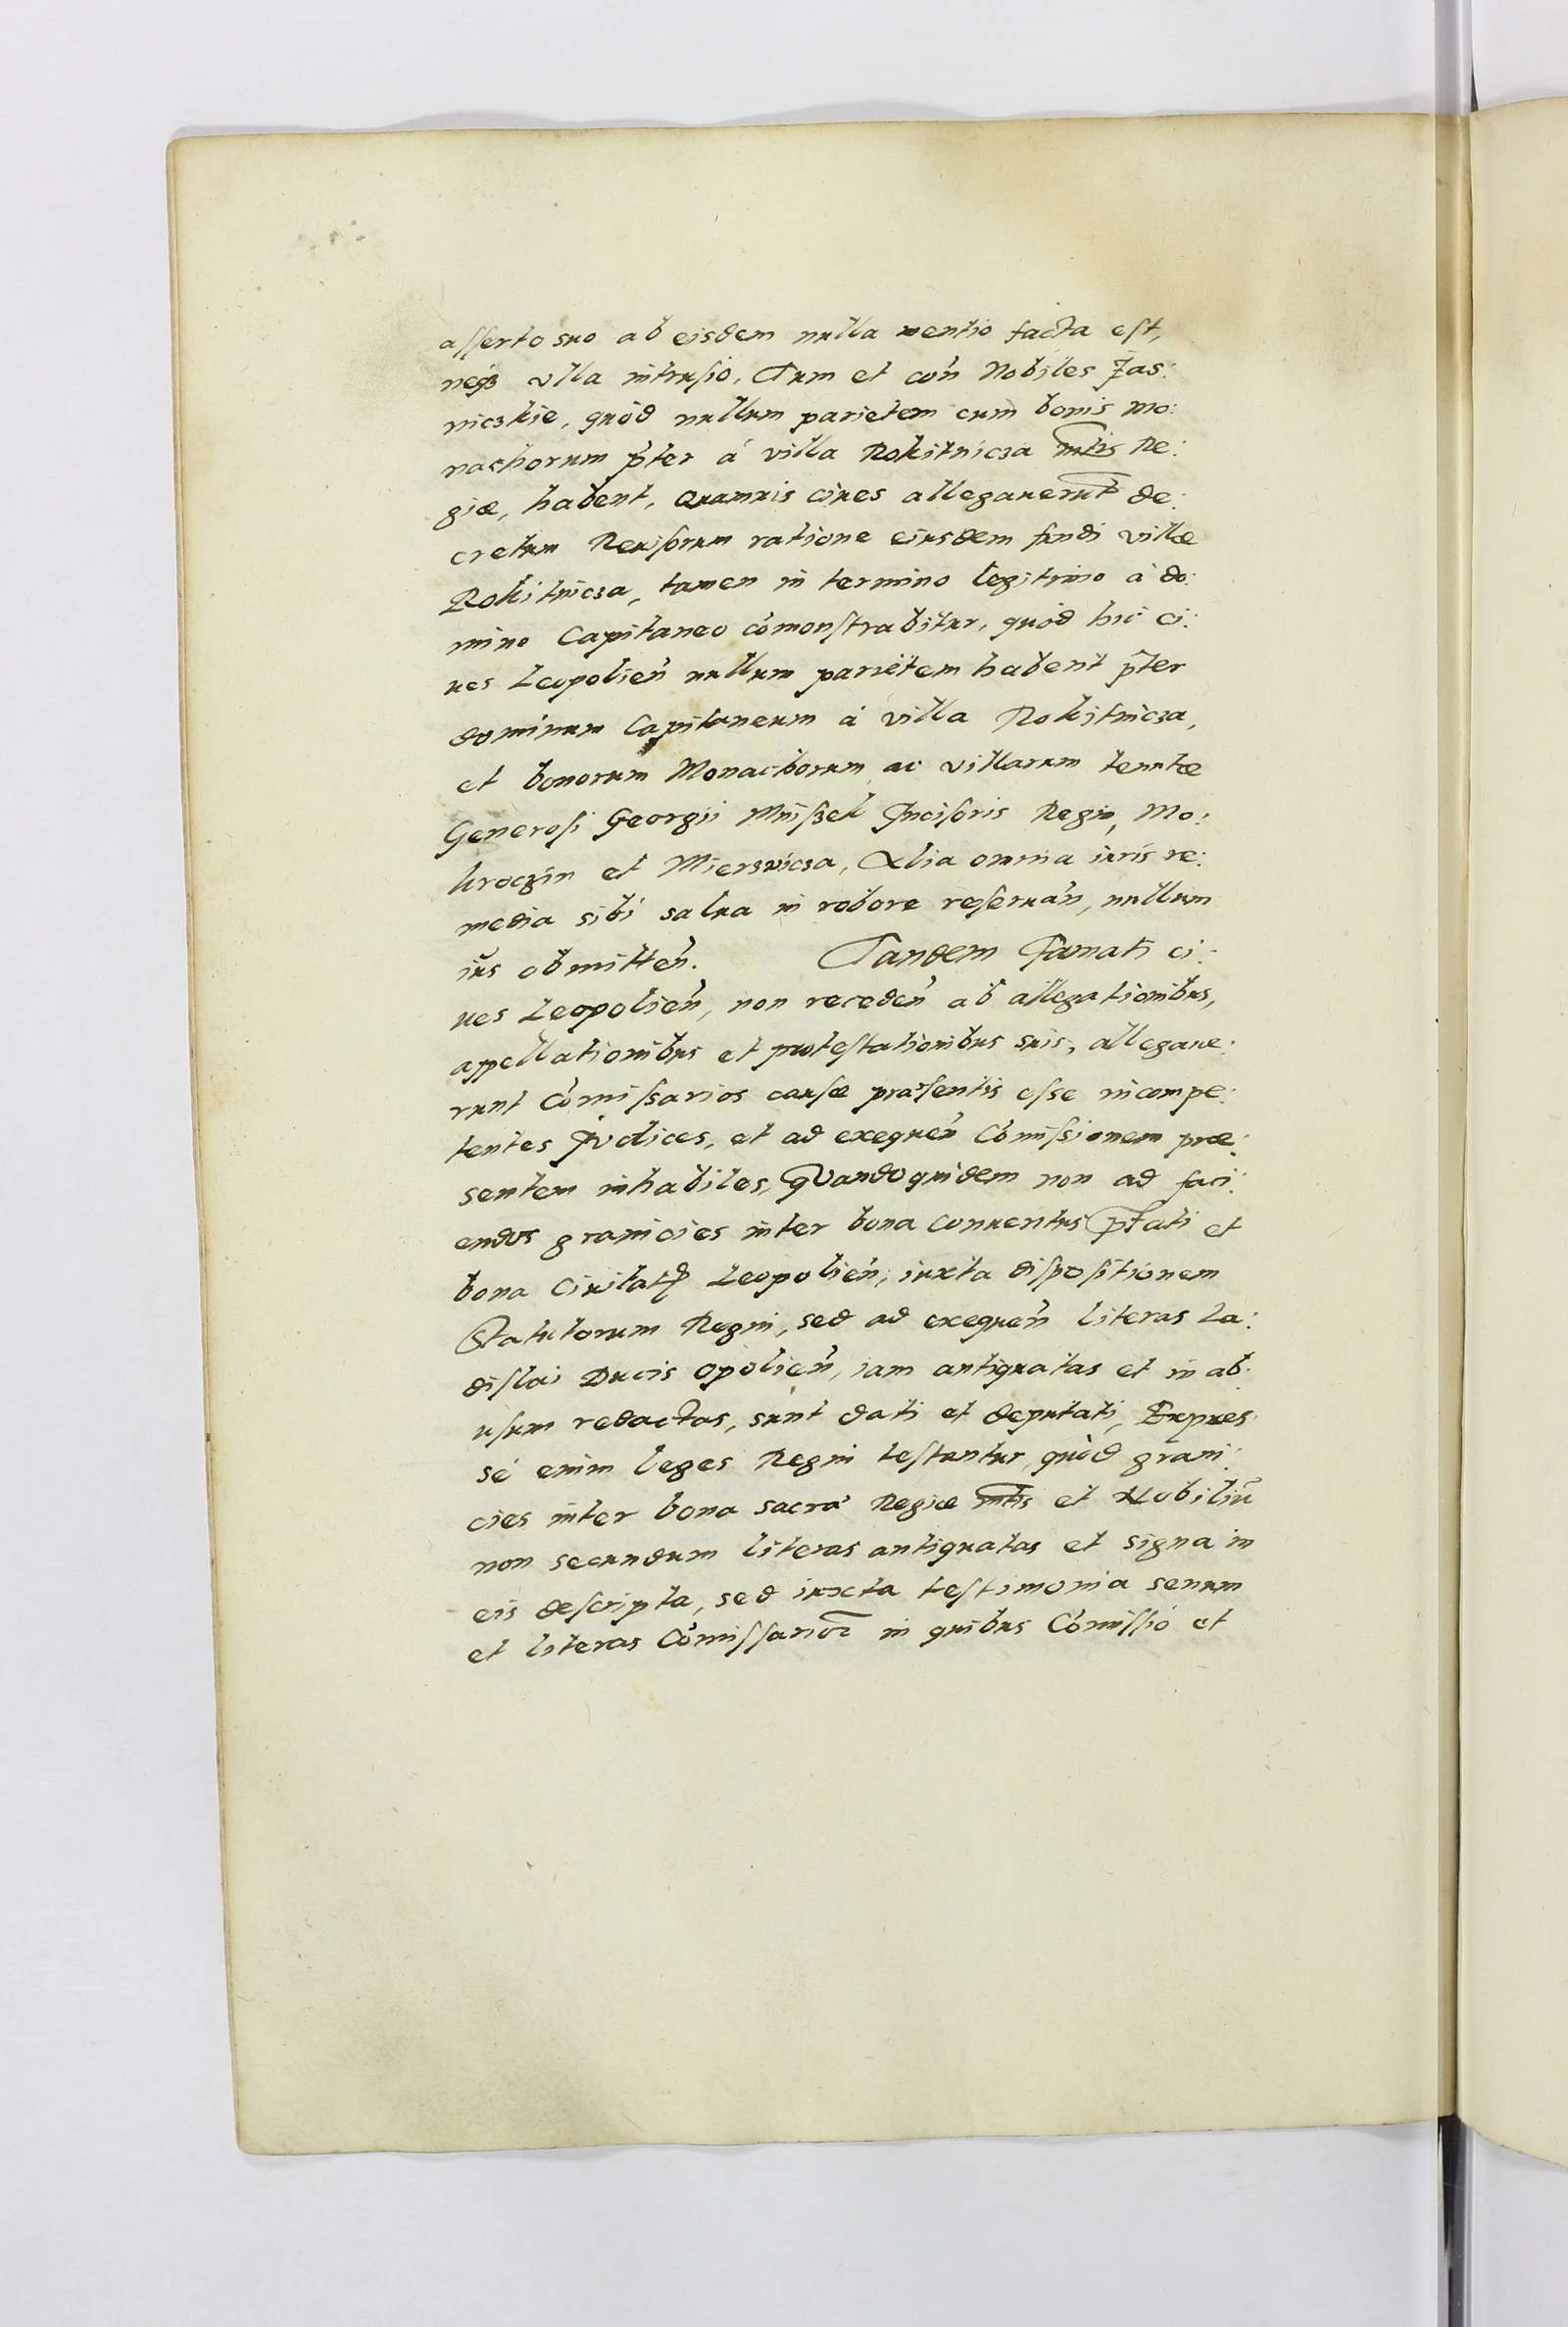 asserto suo ab eisdem nulla mentio facta est,
neqз vlla intrusio. Tum et con̄ Nobiles Jas:
niczkie, quòd nullum parietem cum bonis Mo:
nachorum p̄ter á villa Rokitnicza Mt̄is Re:
giæ, habent, Quamuis ciues allegauerut̄ de:
cretum Reuisorum ratione eiusdem fundi villæ
Rokitnicza, tamen in termino legitimo à do:
mino Capitaneo com̄onstrabitur, quòd hic ci:
ues Leopolien̄ nullum parietem habent p̄ter
dominum Capitaneum à villa Rokitnicza,
et bonorum Monachorum ac villarum tenutæ
Generosi Georgii Mniszek Incisoris Regni, Mo:
kroczin et Mierzwicza, Alia omnia iuris re:
media sibi salua in robore reseruan̄, nullum
ius obmitten̄. Tandem Famati ci:
ues Leopolien̄, non receden̄ ab allegationibus,
appellationibus et protestationibus suis, allegaue:
runt Com̄issarios causæ præsentis esse incompe:
tentes Judices, et ad exequen̄ Com̄issionem præ:
sentem inhabiles, Quandoquidem non ad faci:
endos granicies inter bona conuentus p̄fati et
bona Ciuitatꝭ Leopolien̄, iuxta dispositionem
Statutorum Regni, sed ad exequen̄ literas La:
dislai Ducis Opolien̄, iam antiquatas et in ab:
usum redactas, sunt dati et deputati, Expres:
sé enim leges Regni testantur, quòd grani:
cies inter bona sacræ Regiæ Mt̄is et Nobiliū
non secundum literas antiquatas et signa in
eis descripta, sed iuxta testimonia senum
et literas Com̄issarioꝝ in quibus Com̄issio et